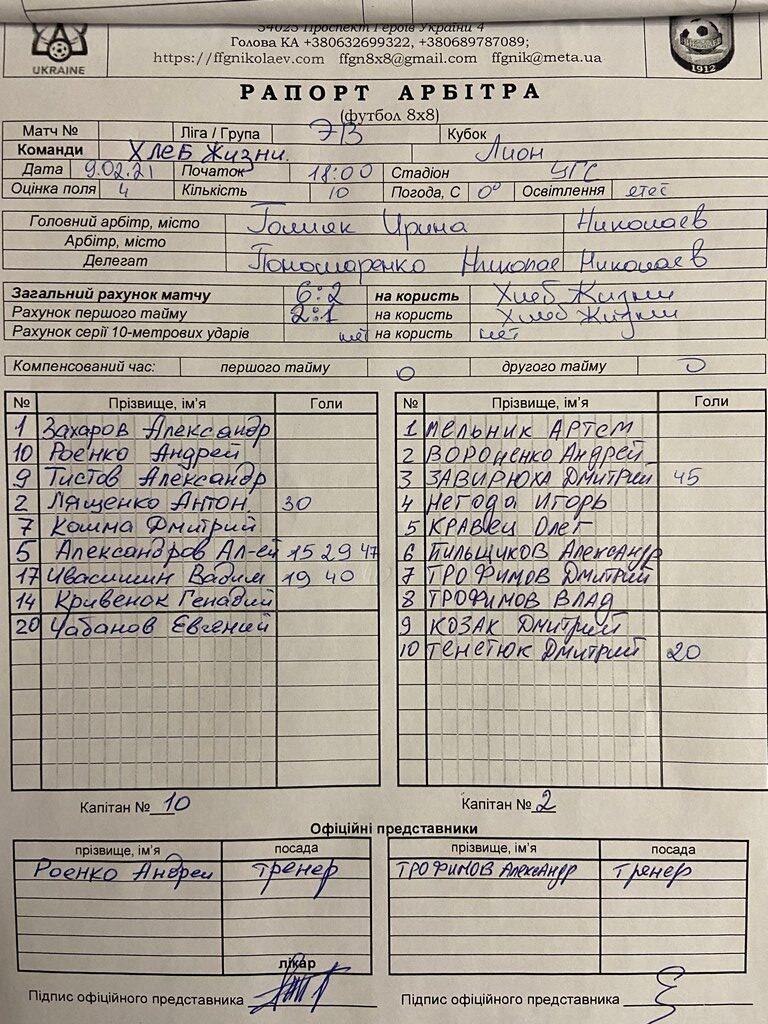 UKRAINE
54025 Проспект Героїв України 4
Голова КА +380632699322, +380689787089;
https://ffgnikolaev.com ffgn8x8@gmail.com ffgnik@meta.ua
1912
РАПОРТ АРБІТРА
(футбол 8х8)
Матч № Ліга / Група ЭВ Кубок
Команди Хлеб Жизни. Лион
Дата 9.02.21 Початок 18:00 Стадион УГС
Оцінка поля 4 Кількість 10 Погода, С 0° Освітлення
Головний арбітр, місто Ирина Николаев
Арбітр, місто
Делегат Пономаренко Николае Николаев
Загальний рахунок матчу 6:2 на користь Хлеб Жизни
Рахунок першого тайму 2:1 на користь Хлеб Жизни
Рахунок серії 10-метрових ударів нет на користь нет
Компенсований час: першого тайму 0 другого тайму 0
№ Прізвище, ім'я Голи № Прізвище, ім'я Голи
1 Захаров Александр 1 Мельник Артем
10 Роенко Андрей 2 Вороненко Андрей
9 Тистов Александр 3 Завирюха Дмитрий 45
2 Лященко Антон 30 4 Негода Игорь
7 Кошма Дмитрий 5 Кравец Олег
5 Александров Ал-ей 15 29 47 6 Пильщиков Александр
17 Ивасишин Вадим 19 40 7 Трофимов Дмитрий
14 Кривенок Генадий 8 Трофимов Влад
20 Чабанов Евгений 9 Козак Дмитрий
10 Тенетюк Дмитрий 20
Капітан № 10 Капітан № 2
Офіційні представники
прізвище, ім'я посада прізвище, ім'я посада
Роенко Андрей тренер Трофимов Александр тренер
лікар
Підпис офіційного представника Підпис офіційного представника